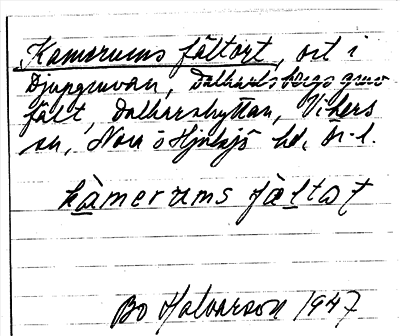 Kamerums fältort, ort i
Djupgruvan, Dalkarlsbergs gruv
fält, Dalkarshyttan, Vikers
sn, Nora o Hjulsjö hd, Ör. l.
kàmerums fæltot
Bo Halvarson 1947